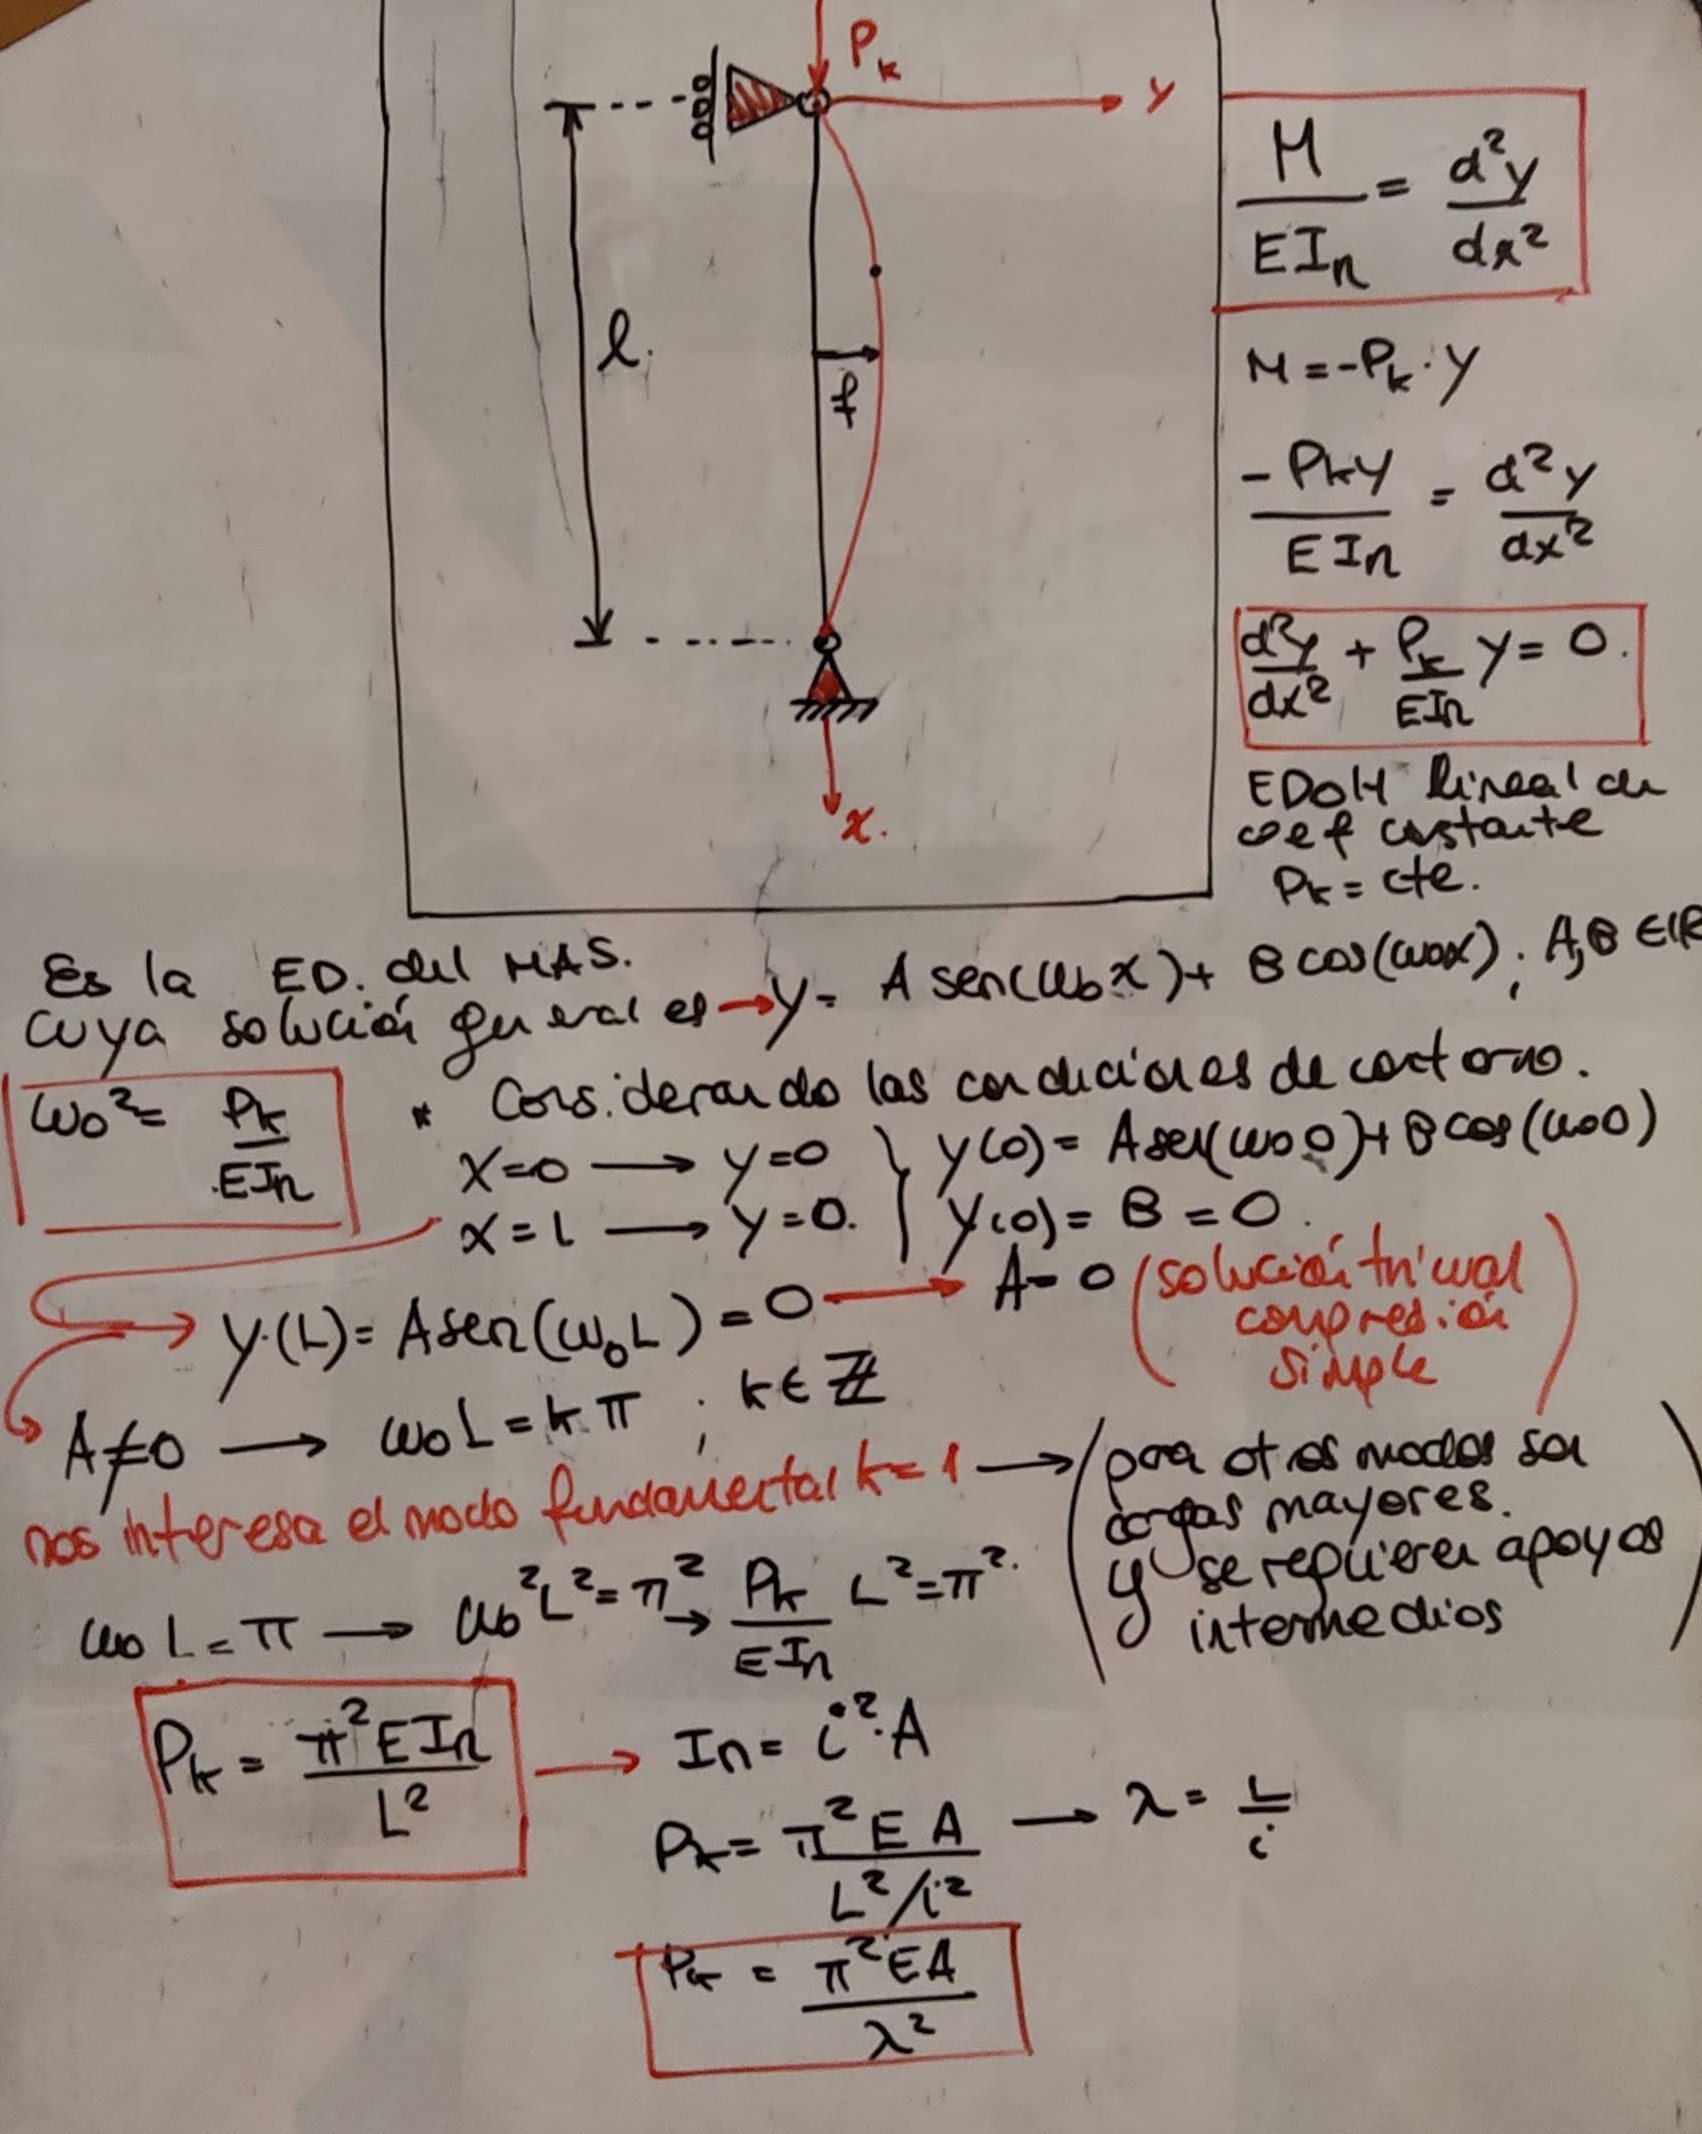 P_k
y
l.
f
x.
M/EIn = d²y/dx²
M = -P_k · y
-P_k y/EIn = d²y/dx²
d²y/dx² + P_k/EIn y = 0.
EDOH lineal de
coef constante
P_k = cte.
Es la ED. del MAS.
cuya solución general es → y = A sen(ω₀x) + B cos(ω₀x) ; A,B ∈ ℝ
ω₀² = P_k/EIn
* Considerando las condiciones de contorno.
x=0 → y=0 } y(0) = A sen(ω₀0) + B cos(ω₀0)
x=L → y=0. } y(0) = B = 0.
y(L) = A sen(ω₀L) = 0 → A = 0 (solución trivial
compresión
simple)
A≠0 → ω₀L = kπ ; k ∈ ℤ
nos interesa el modo fundamental k=1 → (para otros modos son
cargas mayores.
y se requieren apoyos
intermedios)
ω₀L = π → ω₀²L² = π² → P_k/EIn L² = π².
P_k = π²EIn/L² → In = i²·A
P_k = π²EA/(L²/i²) → λ = L/i
P_k = π²EA/λ²